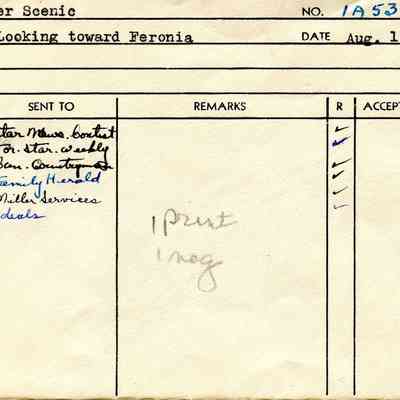 er Scenic NO. 1A53
Looking toward Feronia DATE Aug. 1
SENT TO REMARKS R ACCEPT
tar News. Contest
or. Star. Weekly
Can. Countryman
Family Herald
Miller Services
deals
1 print
1 neg